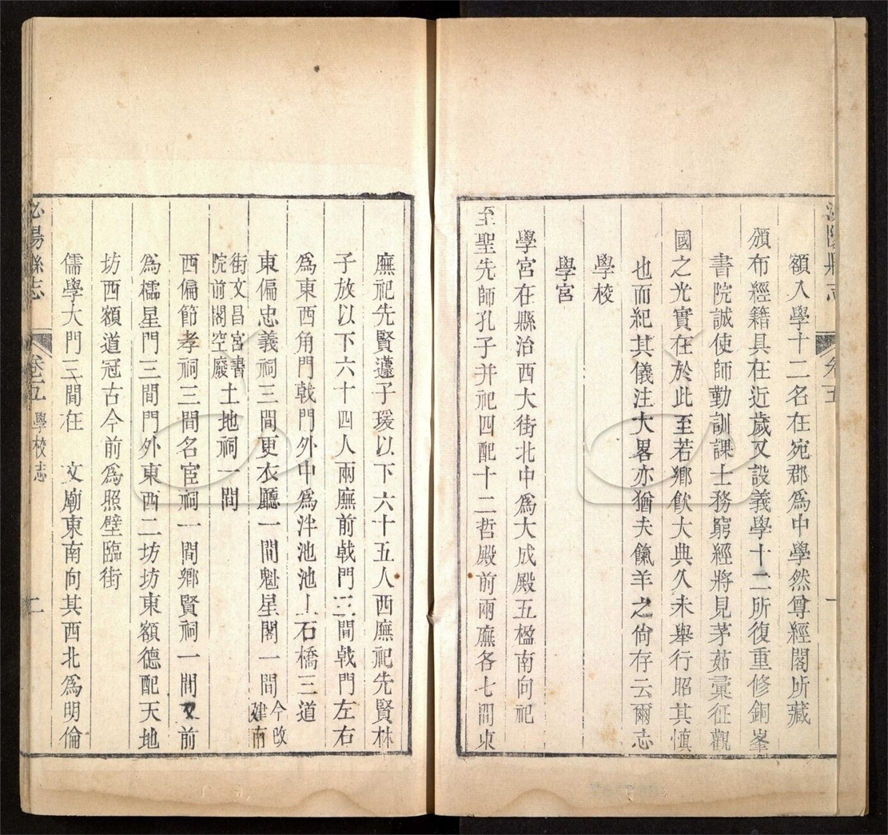 額入學十二名在宛郡爲中學然尊經閣所藏
頒布經籍具在近歲又設義學十二所復重修銅峯
書院誠使師勤訓課士務窮經將見茅茹彙征觀
國之光實在於此至若鄉飲大典久未舉行昭其愼
也而紀其儀注大畧亦猶夫餼羊之尙存云爾志
學校
學宮
學宮在縣治西大街北中爲大成殿五楹南向祀
至聖先師孔子并祀四配十二哲殿前兩廡各七間東
廡祀先賢蘧子瑗以下六十五人西廡祀先賢林
子放以下六十四人兩廡前戟門三間戟門左右
爲東西角門戟門外中爲泮池池上石橋三道
東偏忠義祠三間更衣廳一間魁星閣一間今改建南
街文昌宮書院前閣空廢土地祠一間
西偏節孝祠三間名宦祠一間鄉賢祠一間又前
爲櫺星門三間門外東西二坊坊東額德配天地
坊西額道冠古今前爲照壁臨街
儒學大門三間在 文廟東南向其西北爲明倫
泌陽縣志 卷五 學校志 二